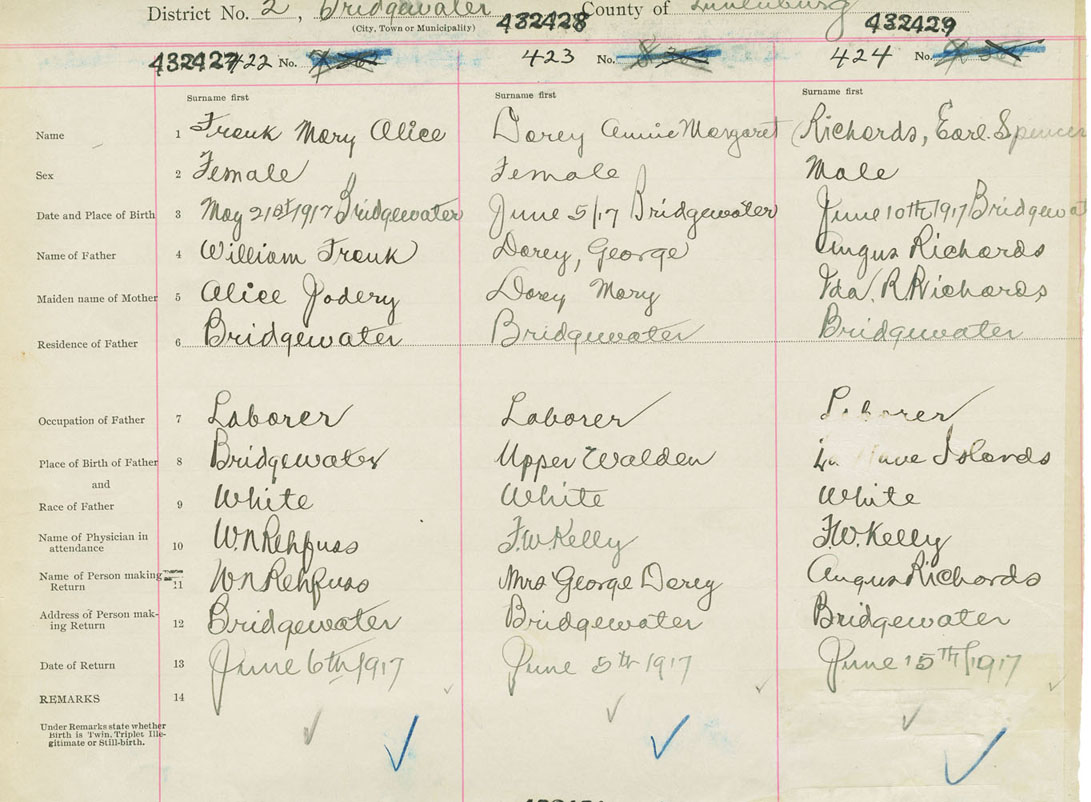 District No. 2, Bridgewater County of Lunenburg
(City, Town or Municipality)
432428 432429
432427 422 No. 423 No. 424 No.
Surname first Surname first Surname first
Name 1 Frank Mary Alice Dorey Annie Margaret Richards, Earl Spencer
Sex 2 Female Female Male
Date and Place of Birth 3 May 21st 1917 Bridgewater June 5/17 Bridgewater June 10th 1917 Bridgewat
Name of Father 4 William Frank Dorey, George Angus Richards
Maiden name of Mother 5 Alice Jodery Dorey Mary Ida R. Richards
Residence of Father 6 Bridgewater Bridgewater Bridgewater
Occupation of Father 7 Laborer Laborer Laborer
Place of Birth of Father 8 Bridgewater Upper Walden La Have Islands
and
Race of Father 9 White White White
Name of Physician in
attendance 10 W.N Rehfuss F.W. Kelly F.W. Kelly
Name of Person making
Return 11 W N Rehfuss Mrs George Dorey Angus Richards
Address of Person mak-
ing Return 12 Bridgewater Bridgewater Bridgewater
Date of Return 13 June 6th 1917 June 5th 1917 June 15TH/1917
REMARKS 14
Under Remarks state whether
Birth is Twin, Triplet Ille-
gitimate or Still-birth.